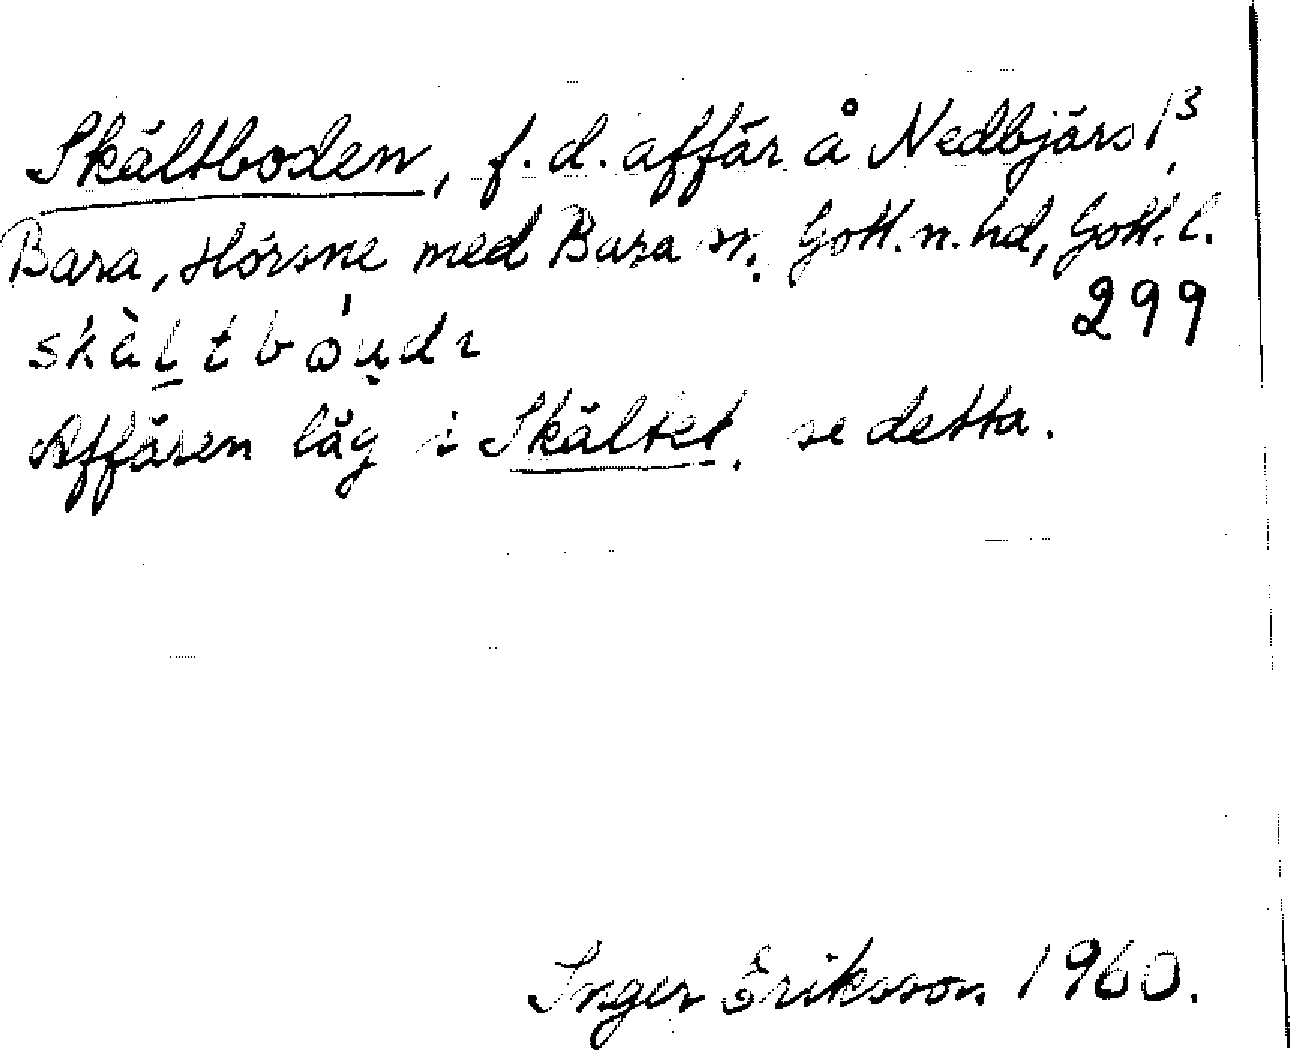 Skältboden, f.d. affär å Nedbjärs 1³,
Bara, Hörsne med Bara sn. Gotl. n. hd, Gotl. l.
299
skàltbóudɩ
Affären låg i Skältet, se detta.
Inger Eriksson 1960.